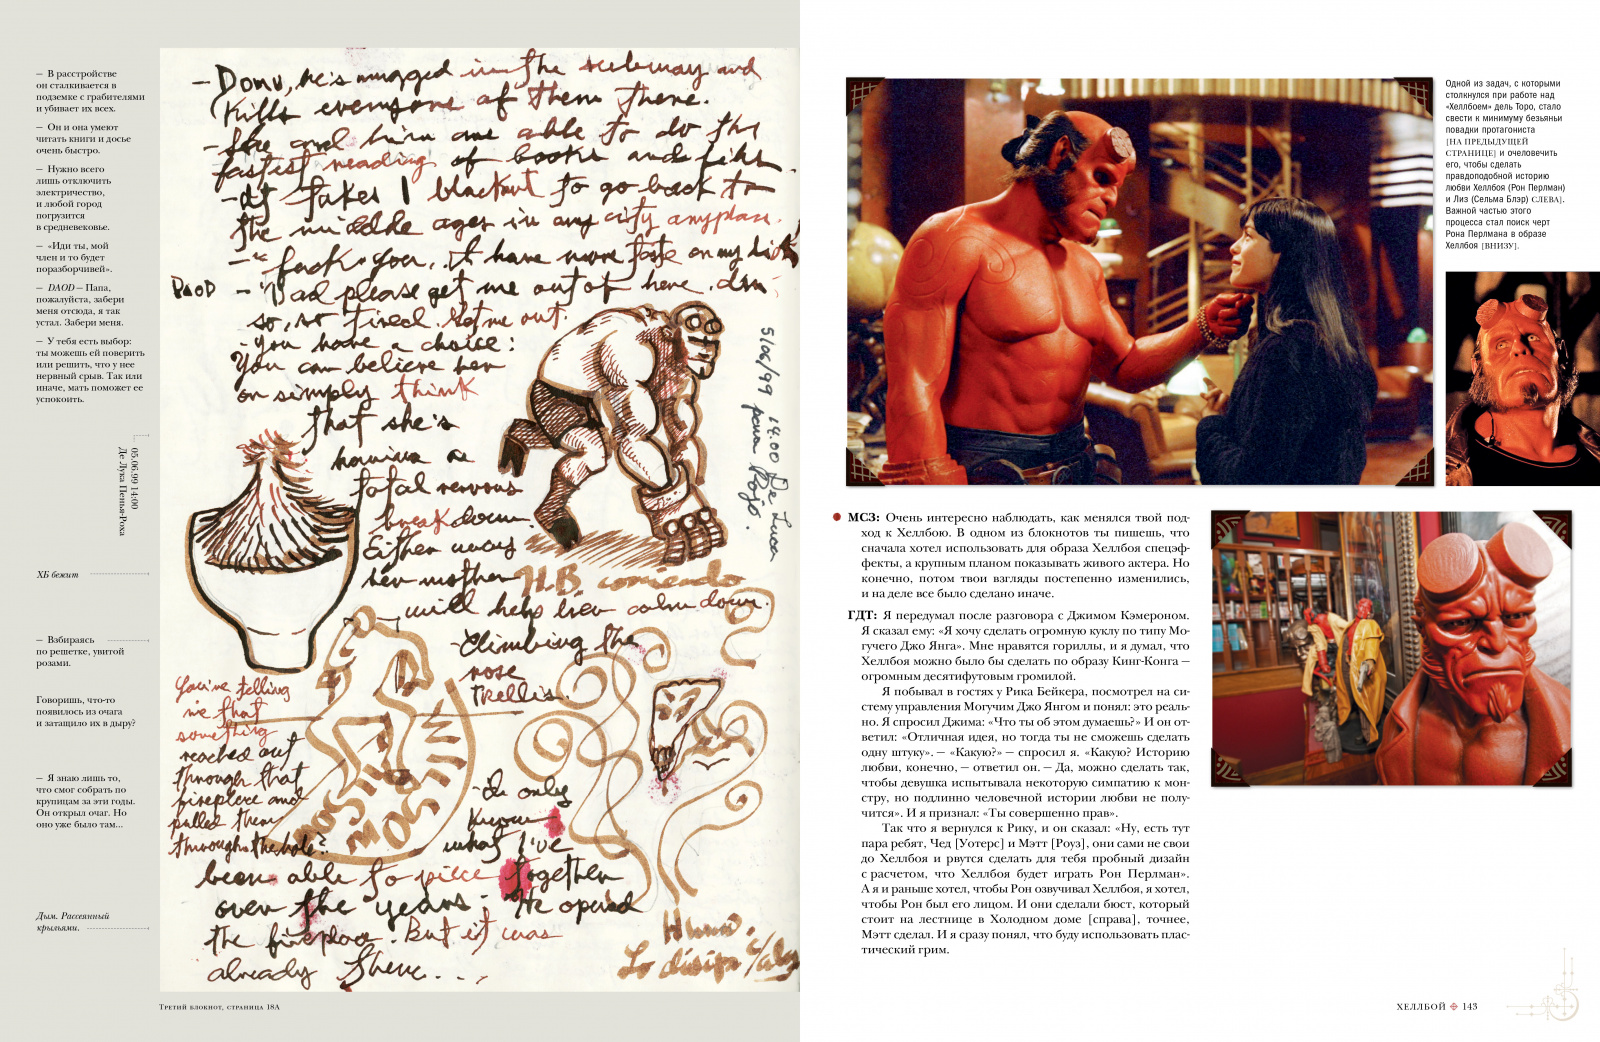 — В расстройстве
он сталкивается в
подземке с грабителями
и убивает их всех.
— Он и она умеют
читать книги и досье
очень быстро.
— Нужно всего
лишь отключить
электричество,
и любой город
погрузится
в средневековье.
— «Иди ты, мой
член и то будет
поразборчивей».
— DAOD — Папа,
пожалуйста, забери
меня отсюда, я так
устал. Забери меня.
— У тебя есть выбор:
ты можешь ей поверить
или решить, что у нее
нервный срыв. Так или
иначе, мать поможет ее
успокоить.
05.06.99 14:00
Де Лука Пенья-Роха
ХБ бежит
— Взбираясь
по решетке, увитой
розами.
Говоришь, что-то
появилось из очага
и затащило их в дыру?
— Я знаю лишь то,
что смог собрать по
крупицам за эти годы.
Он открыл очаг. Но
оно уже было там...
Дым. Рассеянный
крыльями.
he's mugged in the subway and
kills everyone of them there.
- She and him are able to do the
fastest reading of books and files
- It takes 1 blackout to go back to
the middle ages in any city anyplace.
- "fuck you, I have more taste on my dick
DAOD - "Dad please get me out of here. I'm
so, so tired. Get me out.
- You have a choice:
You can believe her
or simply think
that she's
having a
total nervous
breakdown.
Either way
her mother
will help her calm down.
5/06/99 14.00 De Luca
pena Roja.
H.B. corriendo
- Climbing the
rose
trellis.
You're telling
me that
something
reached out
through that
fireplace and
pulled them
through the hole?
MOSTRO MOSTRO
- I only
know
what I've
been able to piece together
over the years. He opened
the fireplace. But it was
already there...
Humo.
Lo disipa c/alas
Третий блокнот, страница 18А
Одной из задач, с которыми
столкнулся при работе над
«Хеллбоем» дель Торо, стало
свести к минимуму безьяньи
повадки протагониста
[НА ПРЕДЫДУЩЕЙ
СТРАНИЦЕ] и очеловечить
его, чтобы сделать
правдоподобной историю
любви Хеллбоя (Рон Перлман)
и Лиз (Сельма Блэр) СЛЕВА].
Важной частью этого
процесса стал поиск черт
Рона Перлмана в образе
Хеллбоя [ВНИЗУ].
МСЗ: Очень интересно наблюдать, как менялся твой под-
ход к Хеллбою. В одном из блокнотов ты пишешь, что
сначала хотел использовать для образа Хеллбоя спецэф-
фекты, а крупным планом показывать живого актера. Но
конечно, потом твои взгляды постепенно изменились,
и на деле все было сделано иначе.
ГДТ: Я передумал после разговора с Джимом Кэмероном.
Я сказал ему: «Я хочу сделать огромную куклу по типу Мо-
гучего Джо Янга». Мне нравятся гориллы, и я думал, что
Хеллбоя можно было бы сделать по образу Кинг-Конга —
огромным десятифутовым громилой.
Я побывал в гостях у Рика Бейкера, посмотрел на си-
стему управления Могучим Джо Янгом и понял: это реаль-
но. Я спросил Джима: «Что ты об этом думаешь?» И он от-
ветил: «Отличная идея, но тогда ты не сможешь сделать
одну штуку». — «Какую?» — спросил я. «Какую? Историю
любви, конечно, — ответил он. — Да, можно сделать так,
чтобы девушка испытывала некоторую симпатию к мон-
стру, но подлинно человечной истории любви не полу-
чится». И я признал: «Ты совершенно прав».
Так что я вернулся к Рику, и он сказал: «Ну, есть тут
пара ребят, Чед [Уотерс] и Мэтт [Роуз], они сами не свои
до Хеллбоя и рвутся сделать для тебя пробный дизайн
с расчетом, что Хеллбоя будет играть Рон Перлман».
А я и раньше хотел, чтобы Рон озвучивал Хеллбоя, я хотел,
чтобы Рон был его лицом. И они сделали бюст, который
стоит на лестнице в Холодном доме [справа], точнее,
Мэтт сделал. И я сразу понял, что буду использовать плас-
тический грим.
ХЕЛЛБОЙ 143